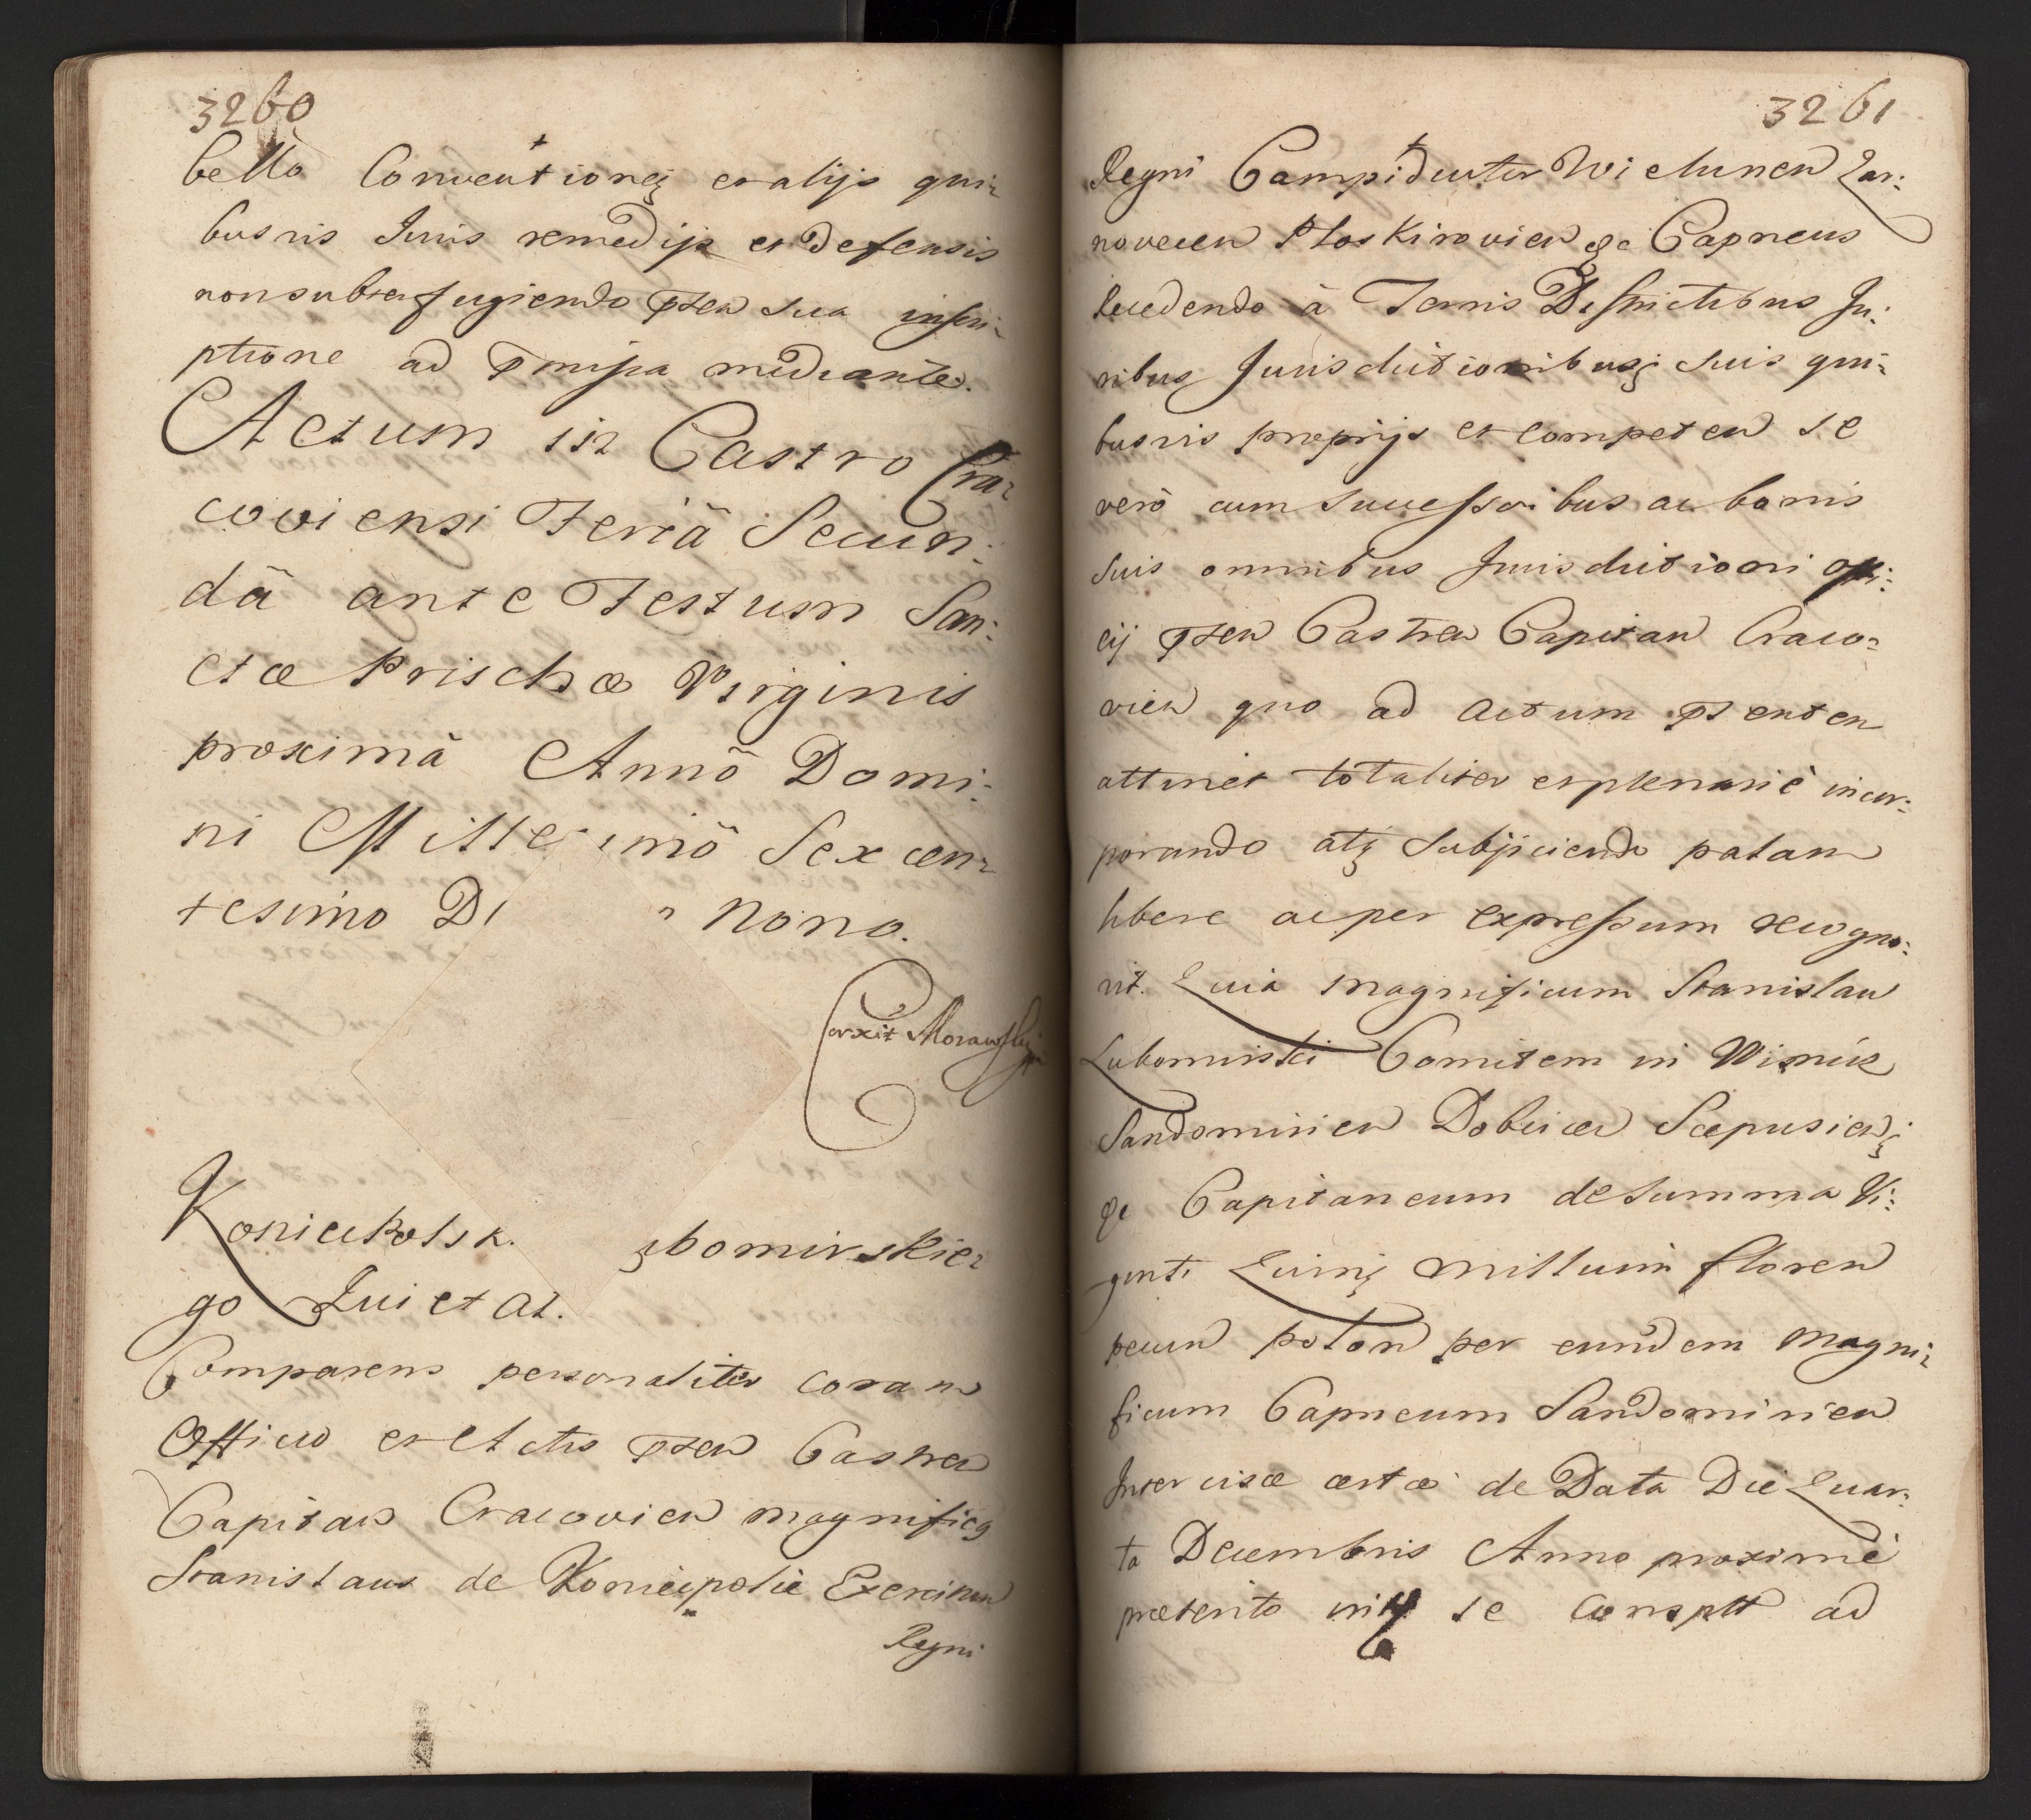 3260
bello Conventioneq; et alijs qui-
busvis Juris remedijs et defensis
non subterfugiendo pñen sua inscri-
ptione ad pmissa mediante.
Actum in Castro Cra-
coviensi Feriâ Secun:
dâ ante Festum San:
ctæ Prischæ Virginis
proximâ Annô Domi:
ni Mille imô Sexcen-
tesimo D nono.
Corrxit Morawsky
Koniecpolsk. bomirskie-
go Quiet at.
Comparens personaliter coram
Officio et Actis pñen Castren
Capitan Cracovien magnificq
Stanislaus de Koniecpolie Exercituu
Regni
3261
Regni Campiductor Wielunen Zar:
novecen Ploskirovien &c Capneus
Recedendo à Terris Districtibus Ju:
ribus Jurisdictionibusq; suis qui-
busvis proprijs et competen se
verò cum successoribus ac bonis
suis omnibus Jurisdictioni offi:
cij pñen Castren Capitan Craco-
vien quo ad actum pñenten
attinet totaliter et plenariè incor:
porando atq; subijciendo palam
libere ac per expressum recogno:
vit. Quia magnificum Stanislau
Lubomirski Comitem in Wisnic
Sandomirien Dobcicen Scepusienq;
&c Capitaneum de summa Vi:
ginti Quinq; millium floren
pecun polon per eundem magni-
ficum Capneum Sandomirien
Intercisæ certæ de Data Die Quar:
ta Decembris Anno proximè
præterito inity se conspltt ad